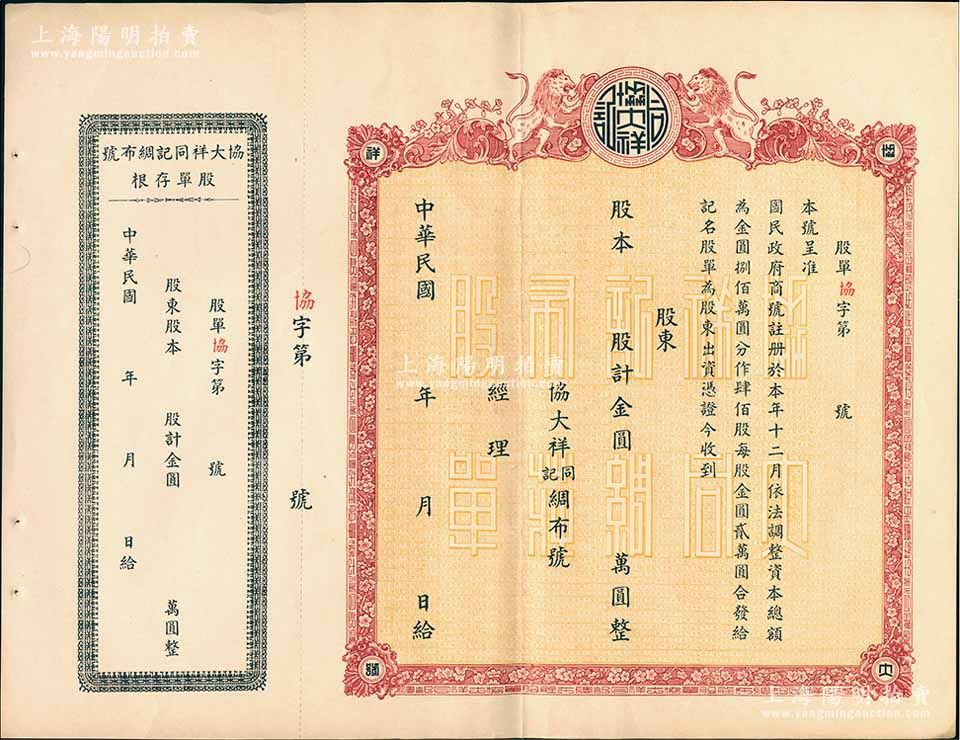 上海陽明拍賣
www.yangmingauction.com
協大祥同記
協
大
祥
綢
股單協字第 號
本號呈准
國民政府商號註册於本年十二月依法調整資本總額
為金圓捌佰萬圓分作肆佰股每股金圓貳萬圓合發給
記名股單為股東出資憑證今收到
股東
股本 股計金圓 萬圓整
協大祥同記綢布號
經理
中華民國 年 月 日給
協字第 號
協大祥同記綢布號
股單存根
股單協字第 號
股東股本 股計金圓 萬圓整
中華民國 年 月 日給
上海陽明拍賣
www.yangmingauction.com
上海陽明拍賣
www.yangmingauction.com